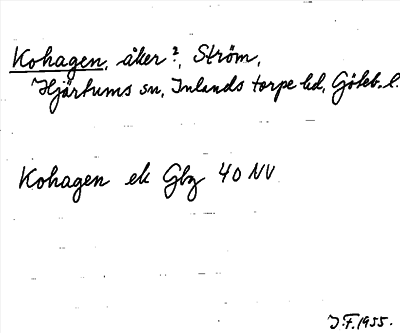 Kohagen, åker ?, Ström,
Hjärtums sn, Inlands torpe hd, Göteb. l.
Kohagen ek Gbg 40 NV
J.F. 1955.